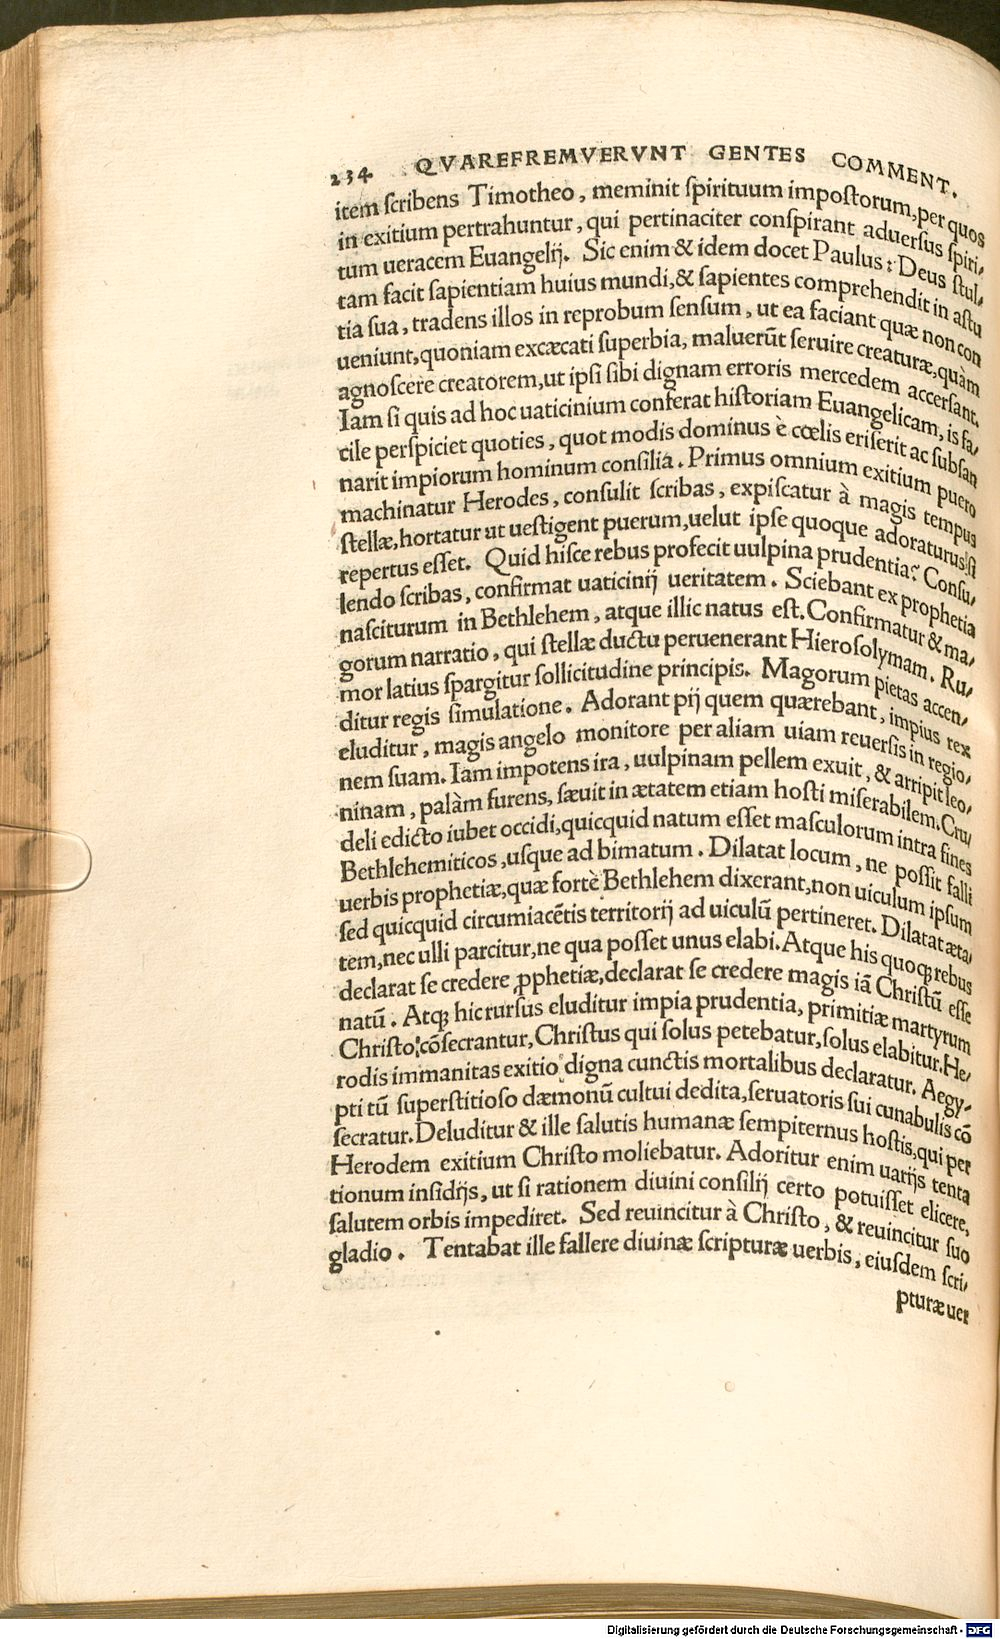 234 QVAREFREMVERVNT GENTES COMMENT.
item ſcribens Timotheo, meminit ſpirituum impoſtorum, per quos
in exitium pertrahuntur, qui pertinaciter conſpirant aduerſus ſpiri/
tum ueracem Euangelij. Sic enim & idem docet Paulus: Deus ſtul/
tam facit ſapientiam huius mundi, & ſapientes comprehendit in aſtu
tia ſua, tradens illos in reprobum ſenſum, ut ea faciant quæ non con
ueniunt, quoniam excæcati ſuperbia, maluerũt ſeruire creaturæ, quàm
agnoſcere creatorem, ut ipſi ſibi dignam erroris mercedem accerſant.
Iam ſi quis ad hoc uaticinium conferat hiſtoriam Euangelicam, is fa/
cile perſpiciet quoties, quot modis dominus è cœlis eriſerit ac ſubſan
narit impiorum hominum conſilia. Primus omnium exitium puero
machinatur Herodes, conſulit ſcribas, expiſcatur à magis tempus
ſtellæ, hortatur ut ueſtigent puerum, uelut ipſe quoque adoraturus ſi
repertus eſſet. Quid hiſce rebus profecit uulpina prudentia? Conſu/
lendo ſcribas, confirmat uaticinij ueritatem. Sciebant ex prophetia
naſciturum in Bethlehem, atque illic natus eſt. Confirmatur & ma/
gorum narratio, qui ſtellæ ductu peruenerant Hieroſolymam. Ru/
mor latius ſpargitur ſollicitudine principis. Magorum pietas accen/
ditur regis ſimulatione. Adorant pij quem quærebant, impius rex
eluditur, magis angelo monitore per aliam uiam reuerſis in regio/
nem ſuam. Iam impotens ira, uulpinam pellem exuit, & arripit leo/
ninam, palàm furens, ſæuit in ætatem etiam hoſti miſerabilem. Cru/
deli edicto iubet occidi, quicquid natum eſſet maſculorum intra fines
Bethlehemiticos, uſque ad bimatum. Dilatat locum, ne poſſit falli
uerbis prophetiæ, quæ fortè Bethlehem dixerant, non uiculum ipſum
ſed quicquid circumiacẽtis territorij ad uiculũ pertineret. Dilatat æta/
tem, nec ulli parcitur, ne qua poſſet unus elabi. Atque his quoqꝫ rebus
declarat ſe credere ꝓphetiæ, declarat ſe credere magis iã Chriſtũ eſſe
natũ. Atqꝫ hic rurſus eluditur impia prudentia, primitiæ martyrum
Chriſto cõſecrantur, Chriſtus qui ſolus petebatur, ſolus elabitur. He/
rodis immanitas exitio digna cunctis mortalibus declaratur. Aegy/
pti tũ ſuperſtitioſo dæmonũ cultui dedita, ſeruatoris ſui cunabulis cõ
ſecratur. Deluditur & ille ſalutis humanæ ſempiternus hoſtis, qui per
Herodem exitium Chriſto moliebatur. Adoritur enim uarijs tenta
tionum inſidijs, ut ſi rationem diuini conſilij certo potuiſſet elicere,
ſalutem orbis impediret. Sed reuincitur à Chriſto, & reuincitur ſuo
gladio. Tentabat ille fallere diuinæ ſcripturæ uerbis, eiuſdem ſcri/
pturæ uer
Digitalisierung gefördert durch die Deutsche Forschungsgemeinschaft - DFG